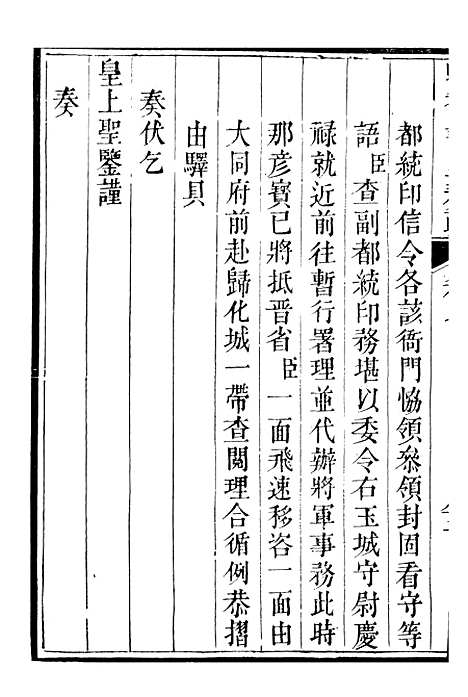 都統印信令各該衙門恊領叅領封固看守等
語臣查副都統印務堪以委令右玉城守尉慶
祿就近前往暫行署理並代辦將軍事務此時
那彥寳已將抵晉省臣一面飛速移咨一面由
大同府前赴歸化城一帶查閱理合循例恭摺
由驛具
奏伏乞
皇上聖鑒謹
奏